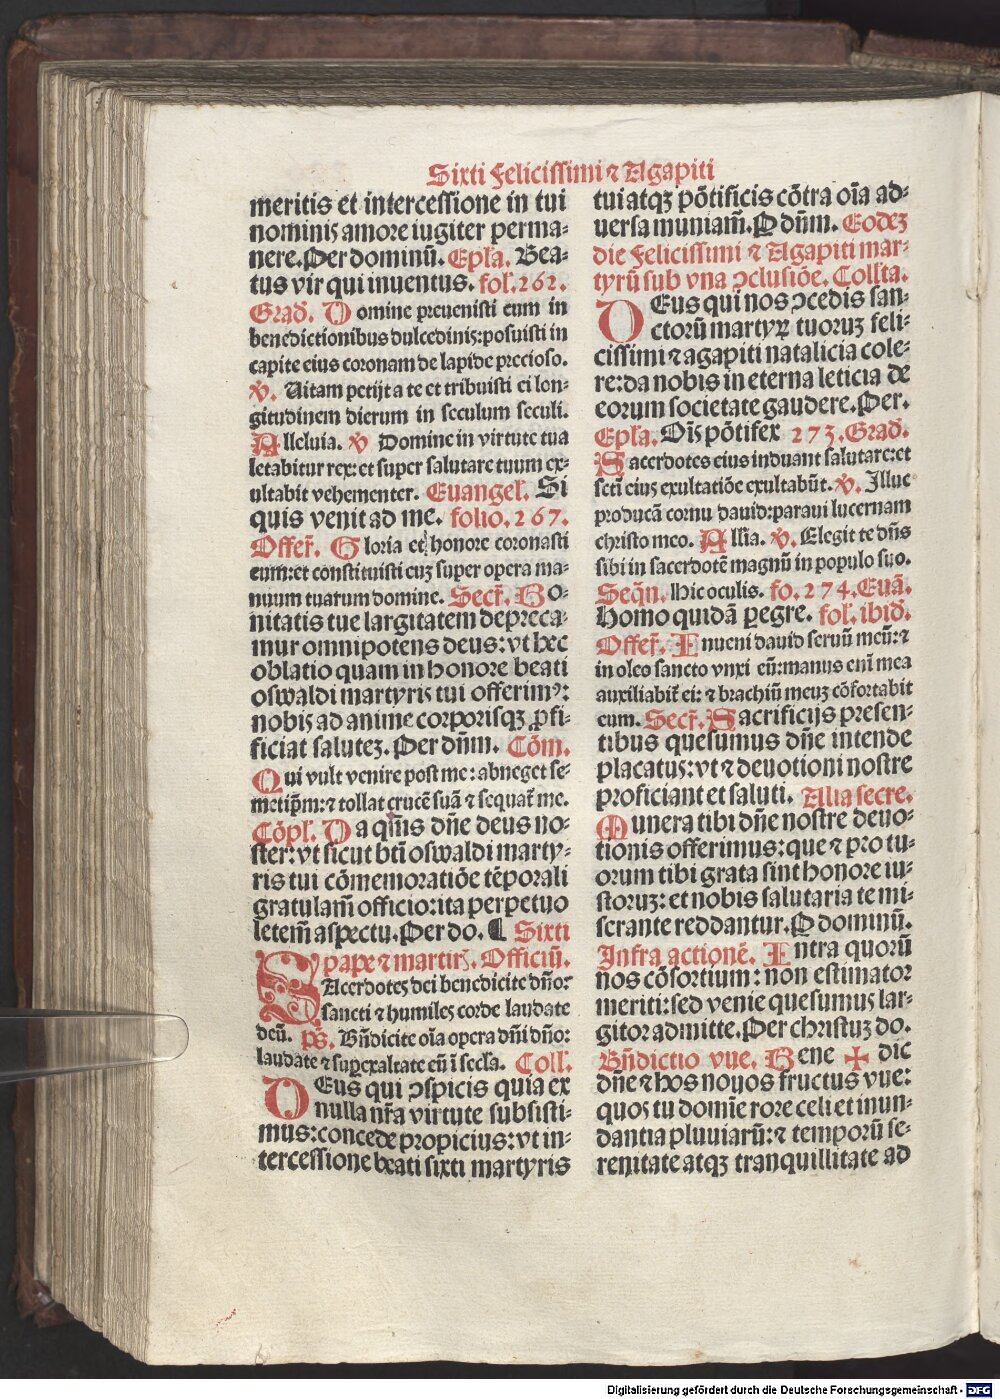 Sixti Felicissimi ⁊ Agapiti
meritis et intercessione in tui
nominis amore iugiter perma⸗
nere. Per dominū. Epl̄a. Bea⸗
tus vir qui inuentus. fol̄. 262.
Grad̄. Domine preuenisti eum in
benedictionibus dulcedinis: posuisti in
capite eius coronam de lapide precioso.
℣. Uitam petijt a te et tribuisti ei lon⸗
gitudinem dierum in seculum seculi.
Alleluia. ℣ Domine in virtute tua
letabitur rex: et super salutare tuum ex⸗
ultabit vehementer. Euangel̄. Si
quis venit ad me. folio. 267.
Offer̄. Gloria et honore coronasti
eum: et constituisti euꝫ super opera ma⸗
nuum tuarum domine. Secr̄. Bo⸗
nitatis tue largitatem depreca⸗
mur omnipotens deus: vt hec
oblatio quam in honore beati
oswaldi martyris tui offerimꝰ:
nobis ad anime corporisqꝫ ꝓfi⸗
ficiat saluteꝫ. Per dn̄m. Cōm.
Qui vult venire post me: abneget se⸗
metip̄m: ⁊ tollat crucē suā ⁊ sequat̄ me.
Cōpl̄. Da qn̄is dn̄e deus no⸗
ster: vt sicut bt̄i oswaldi marty⸗
ris tui cōmemoratiōe tēporali
gratulam̄ officio: ita perpetuo
letem̄ aspectu. Per do. ¶ Sixti
pape ⁊ martir̄. Officiū.
SAcerdotes dei benedicite dn̄o:
sancti ⁊ humiles corde laudate
deū. ps̄. Bn̄dicite oīa opera dn̄i dn̄o:
laudate ⁊ suꝑexaltate eū ī secl̄a. Coll̄.
DEus qui ↄspicis quia ex
nulla nr̄a virtute subsisti⸗
mus: concede propicius: vt in⸗
tercessione beati sixti martyris
tui atqꝫ pōtificis cōtra oīa ad⸗
uersa muniam̄. P dn̄m. Eodeꝫ
die Felicissimi ⁊ Agapiti mar⸗
tyrū sub vna ↄclusiōe. Coll̄ta.
DEus qui nos ↄcedis san⸗
ctorū martyꝝ tuoruꝫ feli⸗
cissimi ⁊ agapiti natalicia cole⸗
re: da nobis in eterna leticia de
eorum societate gaudere. Per.
Epl̄a. Oīs pōtifex 273. Grad̄.
Sacerdotes eius induant salutare: et
sctī eius exultatiōe exultabūt. ℣. Illuc
producā cornu dauid: paraui lucernam
christo meo. All̄ia. ℣. Elegit te dn̄s
sibi in sacerdotē magnū in populo suo.
Seqn̄. Hic oculis. fo. 274. Euā.
Homo quidā ꝑegre. fol̄. ibid̄.
Offer̄. Inueni dauid seruū meū: ⁊
in oleo sancto vnxi eū: manus enī mea
auxiliabit̄ ei: ⁊ brachiū meuꝫ cōfortabit
eum. Secr̄. Sacrificijs presen⸗
tibus quesumus dn̄e intende
placatus: vt ⁊ deuotioni nostre
proficiant et saluti. Alia secre.
Munera tibi dn̄e nostre deuo⸗
tionis offerimus: que ⁊ pro tu⸗
orum tibi grata sint honore iu⸗
storuꝫ: et nobis salutaria te mi⸗
serante reddantur. P dominū.
Infra actionē. Intra quorū
nos cōsortium: non estimator
meriti: sed venie quesumus lar⸗
gitor admitte. Per christuꝫ do.
Bn̄dictio vue. Bene ✠ dic
dn̄e ⁊ hos nouos fructus vue:
quos tu domīe rore celi et inun⸗
dantia pluuiarū: ⁊ temporū se⸗
renitate atqꝫ tranquillitate ad
Digitalisierung gefördert durch die Deutsche Forschungsgemeinschaft - DFG